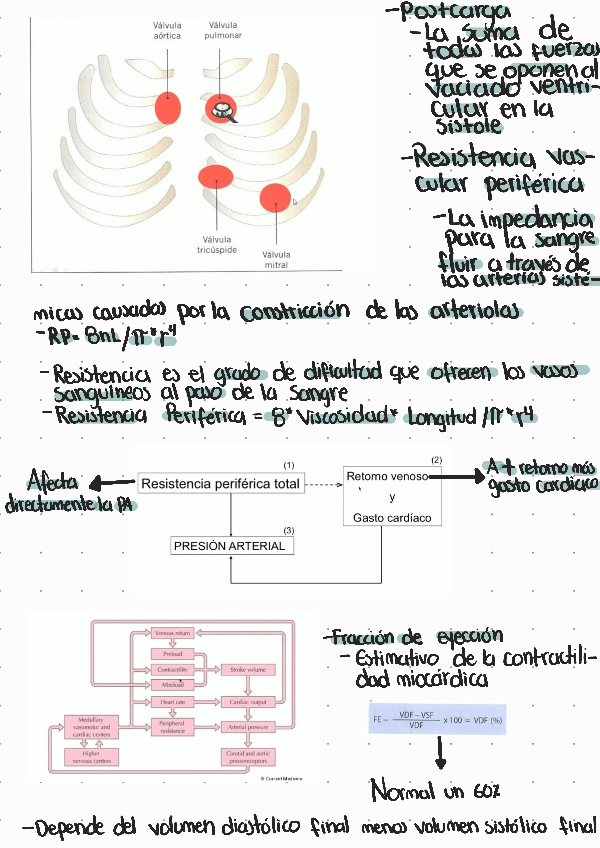 Válvula
aórtica
Válvula
pulmonar
Válvula
tricúspide
Válvula
mitral
-Postcarga
-La suma de
todas las fuerzas
que se oponen al
vaciado ventri-
cular en la
sístole
-Resistencia vas-
cular periférica
-La impedancia
para la sangre
fluir a través de
las arterias sisté-
micas causadas por la constricción de las arteriolas
-RP= 8nL/π*r⁴
-Resistencia es el grado de dificultad que ofrecen los vasos
sanguíneos al paso de la sangre
-Resistencia Periférica = 8* Viscosidad* Longitud /π*r⁴
Afecta
directamente la PA
(1)
Resistencia periférica total
(2)
Retorno venoso
y
Gasto cardíaco
A + retorno más
gasto cardíaco
(3)
PRESIÓN ARTERIAL
Venous return
Preload
Contractility
Afterload
Stroke volume
Heart rate
Cardiac output
Medullary
vasomotor and
cardiac centers
Peripheral
resistance
Arterial pressure
Higher
nervous centers
Carotid and aortic
pressoreceptors
© Current Medicine
-Fracción de eyección
-Estimativo de la contractili-
dad miocárdica
FE = VDF – VSF / VDF x 100 = VDF (%)
Normal un 60%
-Depende del volumen diastólico final menos volumen sistólico final